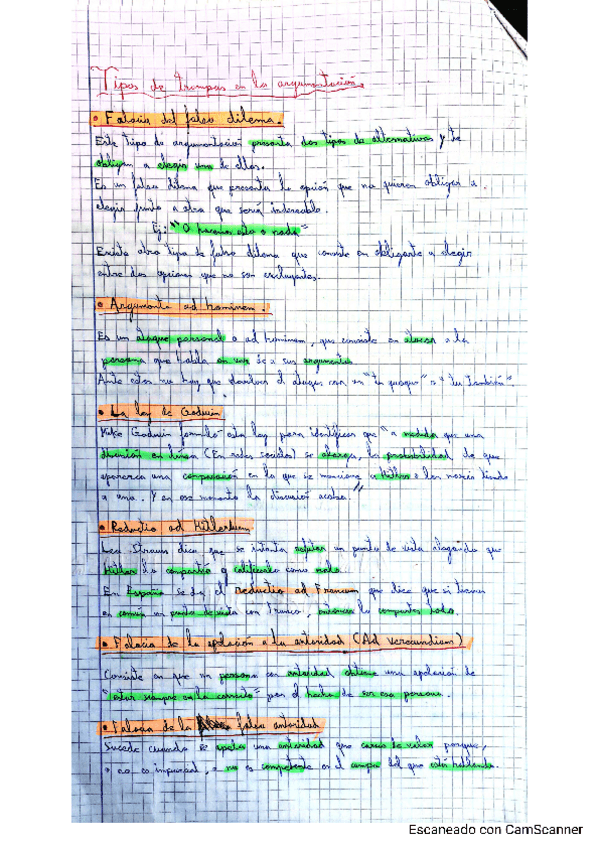 Tipos de trampas en la argumentación.
• Falacia del falso dilema.
Este tipo de argumentación presenta dos tipos de alternativas y te
obligan a elegir una de ellas.
Es un falso dilema que presenta la opción que nos quieren obligar a
elegir junto a otra que será indeseable.
Ej: "O hacemos esto o nada"
Existe otro tipo de falso dilema que consiste en obligarte a elegir
entre dos opciones que no son excluyentes.
• Argumento ad hominem.
Es un ataque personal o ad hominem, que consiste en atacar a la
persona que habla en vez de a sus argumentos
Ante estos no hay que devolver el ataque con un "tu quoque" o "tu también".
• La ley de Godwin
Mike Godwin formuló esta ley para identificar que "a medida que una
discusión en línea (En redes sociales) se alarga, la probabilidad de que
aparezca una comparación en la que se mencione a Hitler o los nazis tiende
a una. Y en ese momento la discusión acaba."
• Reductio ad Hitlerium
Leo Strauss dice que se intenta refutar un punto de vista alegando que
Hitler lo compartió y calificarlo como malo.
En España se da el Reductio ad Francum que dice que si tienes
en común un punto de vista con Franco, entonces lo compartes todo.
• Falacia de la apelación a la autoridad (Ad verecundiam)
Consiste en que una persona con autoridad obtiene una apelación de
"estar siempre en lo correcto" por el hecho de ser esa persona.
• Falacia de la falsa autoridad
Sucede cuando se apela una autoridad que carece de valor porque,
o no es imparcial, o no es competente en el campo del que está hablando.
Escaneado con CamScanner